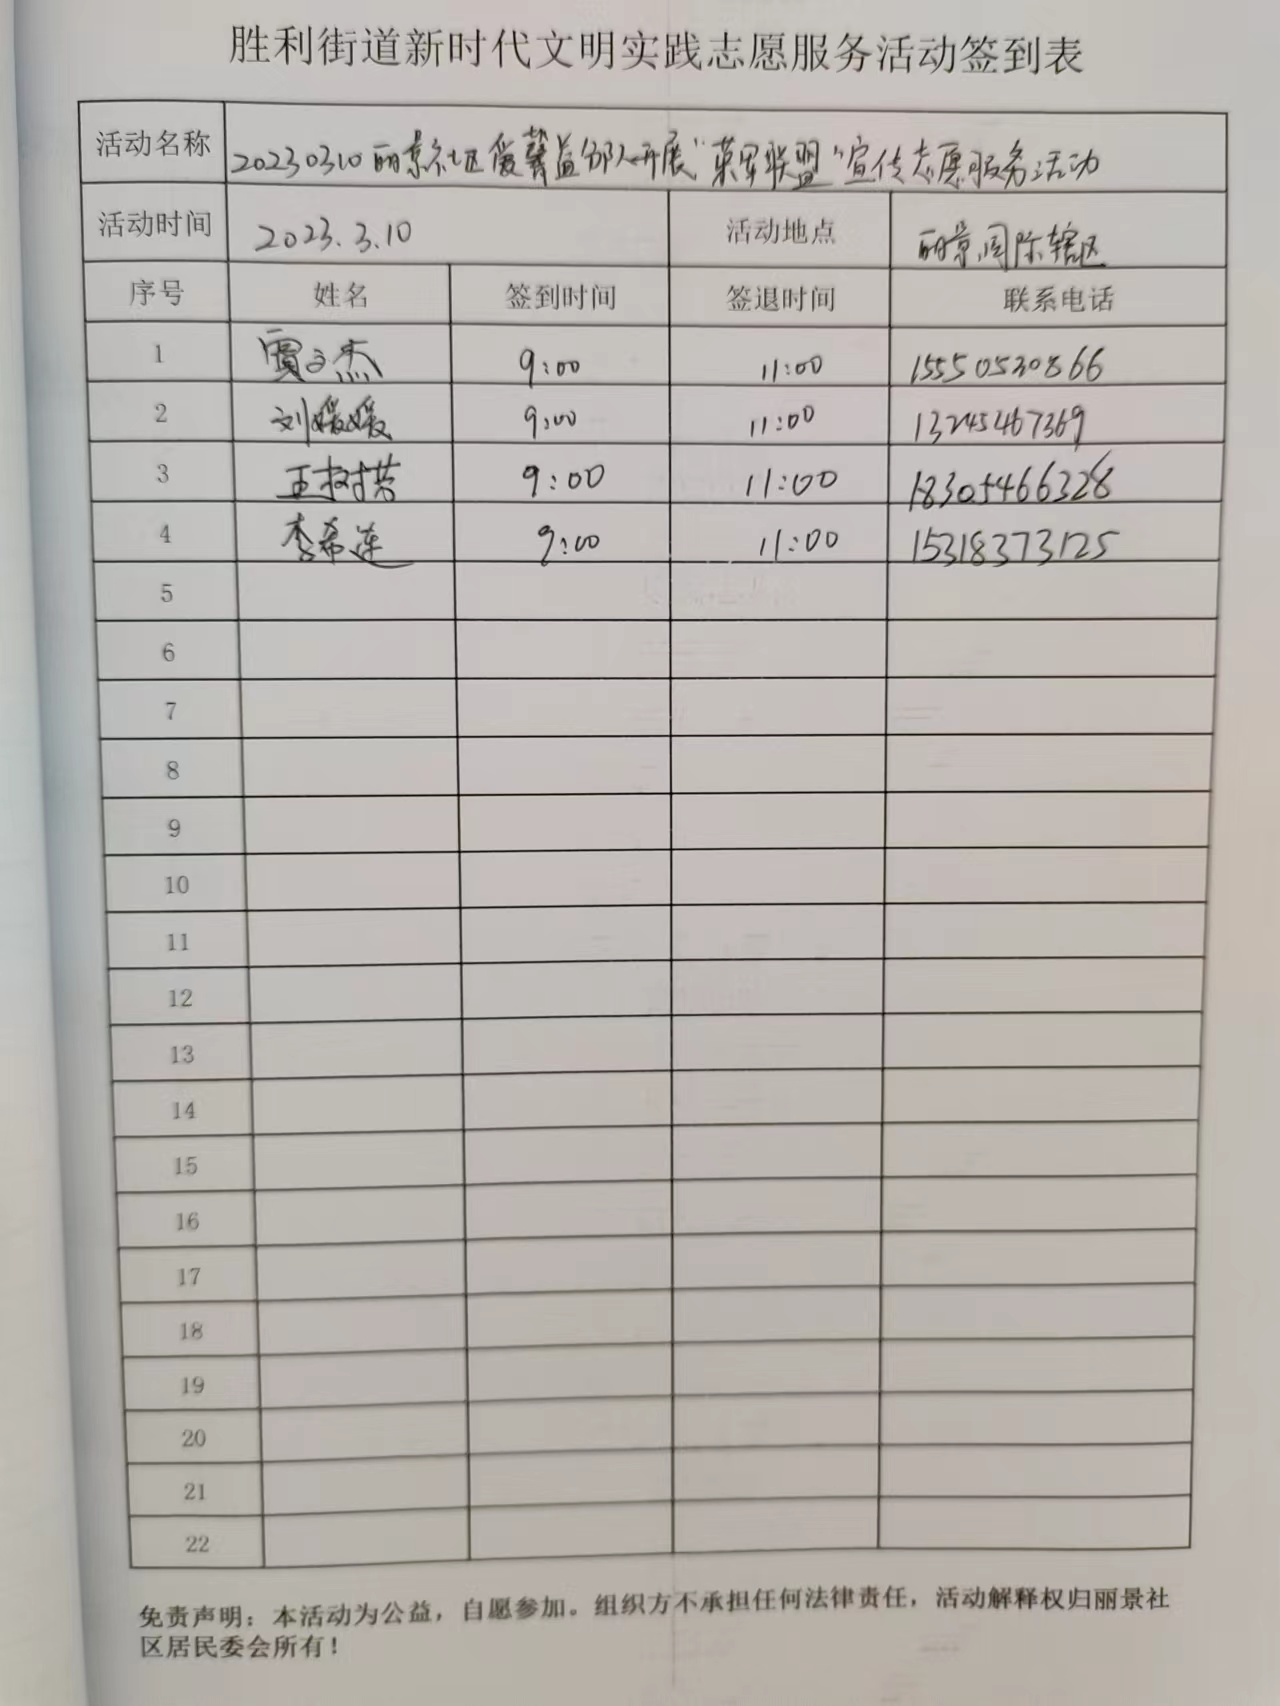 胜利街道新时代文明实践志愿服务活动签到表
活动名称 20230310丽景社区爱馨益部人开展"荣军联盟"宣传志愿服务活动
活动时间 2023.3.10 活动地点 丽景国际辖区
序号 姓名 签到时间 签退时间 联系电话
1 贾文杰 9:00 11:00 15550530866
2 刘媛媛 9:00 11:00 13245467369
3 王树芸 9:00 11:00 18305466328
4 李希莲 9:00 11:00 15318373125
5
6
7
8
9
10
11
12
13
14
15
16
17
18
19
20
21
22
免责声明：本活动为公益，自愿参加。组织方不承担任何法律责任，活动解释权归丽景社
区居民委会所有！